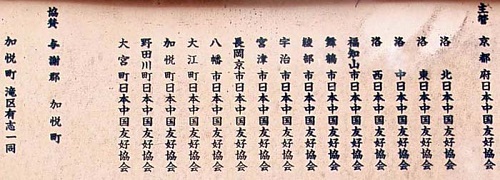 主管 京都府日本中国友好協会
洛北日本中国友好協会
洛東日本中国友好協会
洛中日本中国友好協会
洛西日本中国友好協会
福知山市日本中国友好協会
舞鶴市日本中国友好協会
綾部市日本中国友好協会
宇治市日本中国友好協会
宮津市日本中国友好協会
長岡京市日本中国友好協会
八幡市日本中国友好協会
大江町日本中国友好協会
加悦町日本中国友好協会
野田川町日本中国友好協会
大宮町日本中国友好協会
協賛 与謝郡 加悦町
加悦町 滝区有志一同